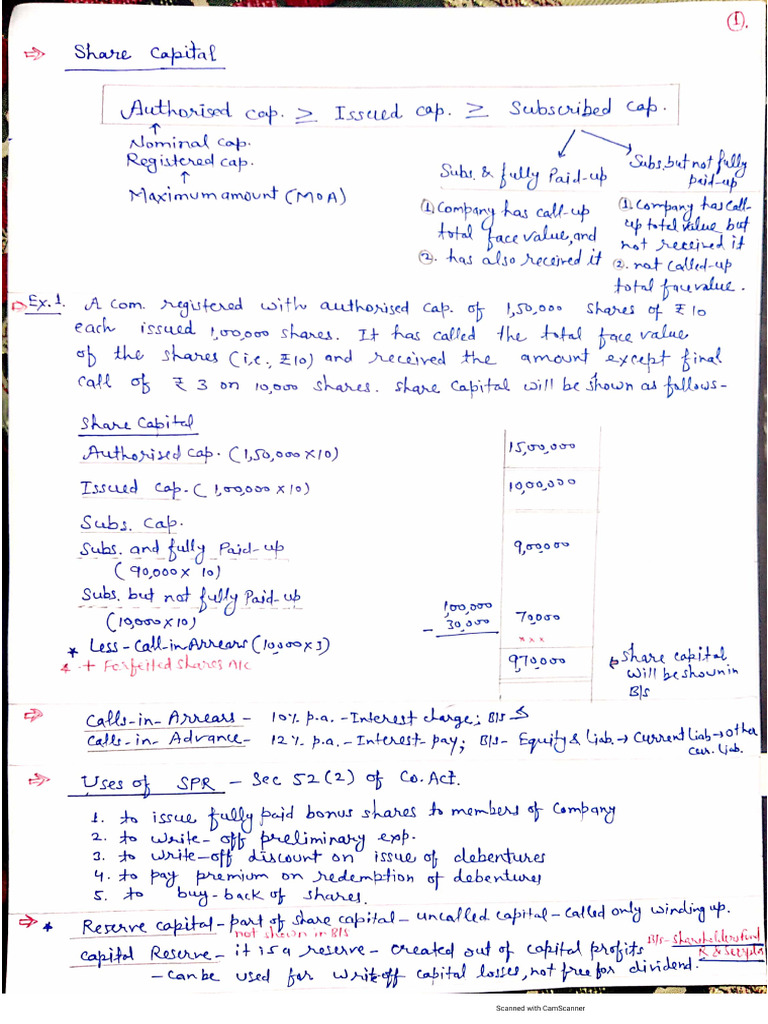 ①.
⇒ Share Capital
Authorised cap. ≥ Issued cap. ≥ Subscribed cap.
↑
Nominal cap.
Registered cap.
↑
Maximum amount (MOA)
Subs. & fully Paid-up
① Company has call-up
total face value, and
②. has also received it
Subs. but not fully
paid-up
①. Company has call-
up total value but
not received it
②. not called-up
total face value.
⇒ Ex. 1. A com. registered with authorised cap. of 1,50,000 shares of ₹10
each issued 1,00,000 shares. It has called the total face value
of the shares (i.e., ₹10) and received the amount except final
call of ₹ 3 on 10,000 shares. Share Capital will be shown as follows-
Share Capital
Authorised cap. (1,50,000 x 10) 15,00,000
Issued Cap. (1,00,000 x 10) 10,00,000
Subs. Cap.
Subs. and fully Paid-up 9,00,000
(90,000 x 10)
Subs. but not fully Paid-up
(10,000 x 10) 100,000
* Less - Call-in Arrears (10,000 x 3) - 30,000 70,000
+ Forfeited shares A/c xxx
970,000 Share capital
will be shown in
B/s
⇒ Calls-in-Arrears - 10% p.a. - Interest charge; B/S
Calls-in-Advance - 12% p.a. - Interest pay; B/s - Equity & Liab. → Current Liab → other
cur. liab.
⇒ Uses of SPR - Sec 52(2) of Co. Act.
1. to issue fully paid bonus shares to members of Company
2. to write-off preliminary exp.
3. to write-off discount on issue of debentures
4. to pay premium on redemption of debentures
5. to buy-back of shares.
⇒ * Reserve capital - part of share capital - uncalled capital - called only winding up.
not shown in B/S
Capital Reserve - it is a reserve - created out of capital profits B/s - Shareholders fund
R & Surplus
- can be used for write-off capital losses, not free for dividend.
Scanned with CamScanner